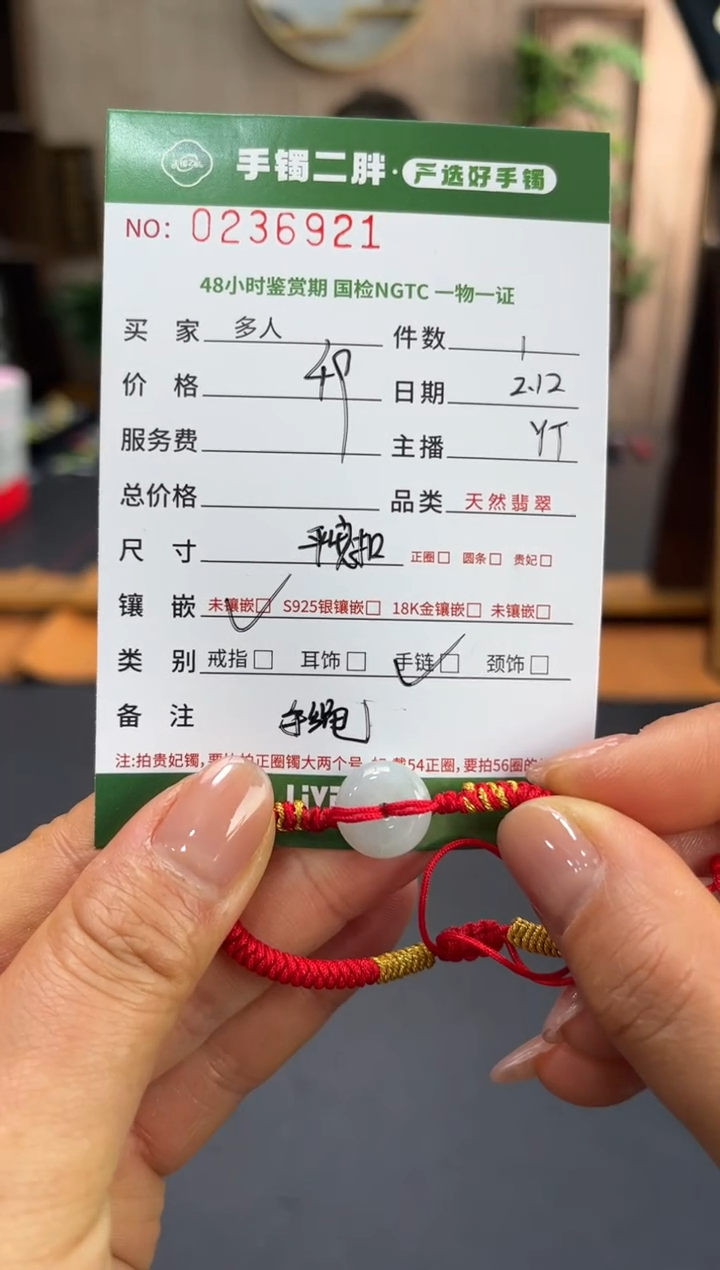 手镯二胖·严选好手镯
NO: 0236921
48小时鉴赏期 国检NGTC 一物一证
买 家 多人 件数 1
价 格 49 日期 2.12
服务费 主播 YT
总价格 品类 天然翡翠
尺 寸 平安扣 正圈□ 圆条□ 贵妃□
镶 嵌 未镶嵌□ S925银镶嵌□ 18K金镶嵌□ 未镶嵌□
类 别 戒指□ 耳饰□ 手链□ 颈饰□
备 注 手绳
注:拍贵妃镯,要 拍正圈镯大两个号 戴54正圈,要拍56圈的